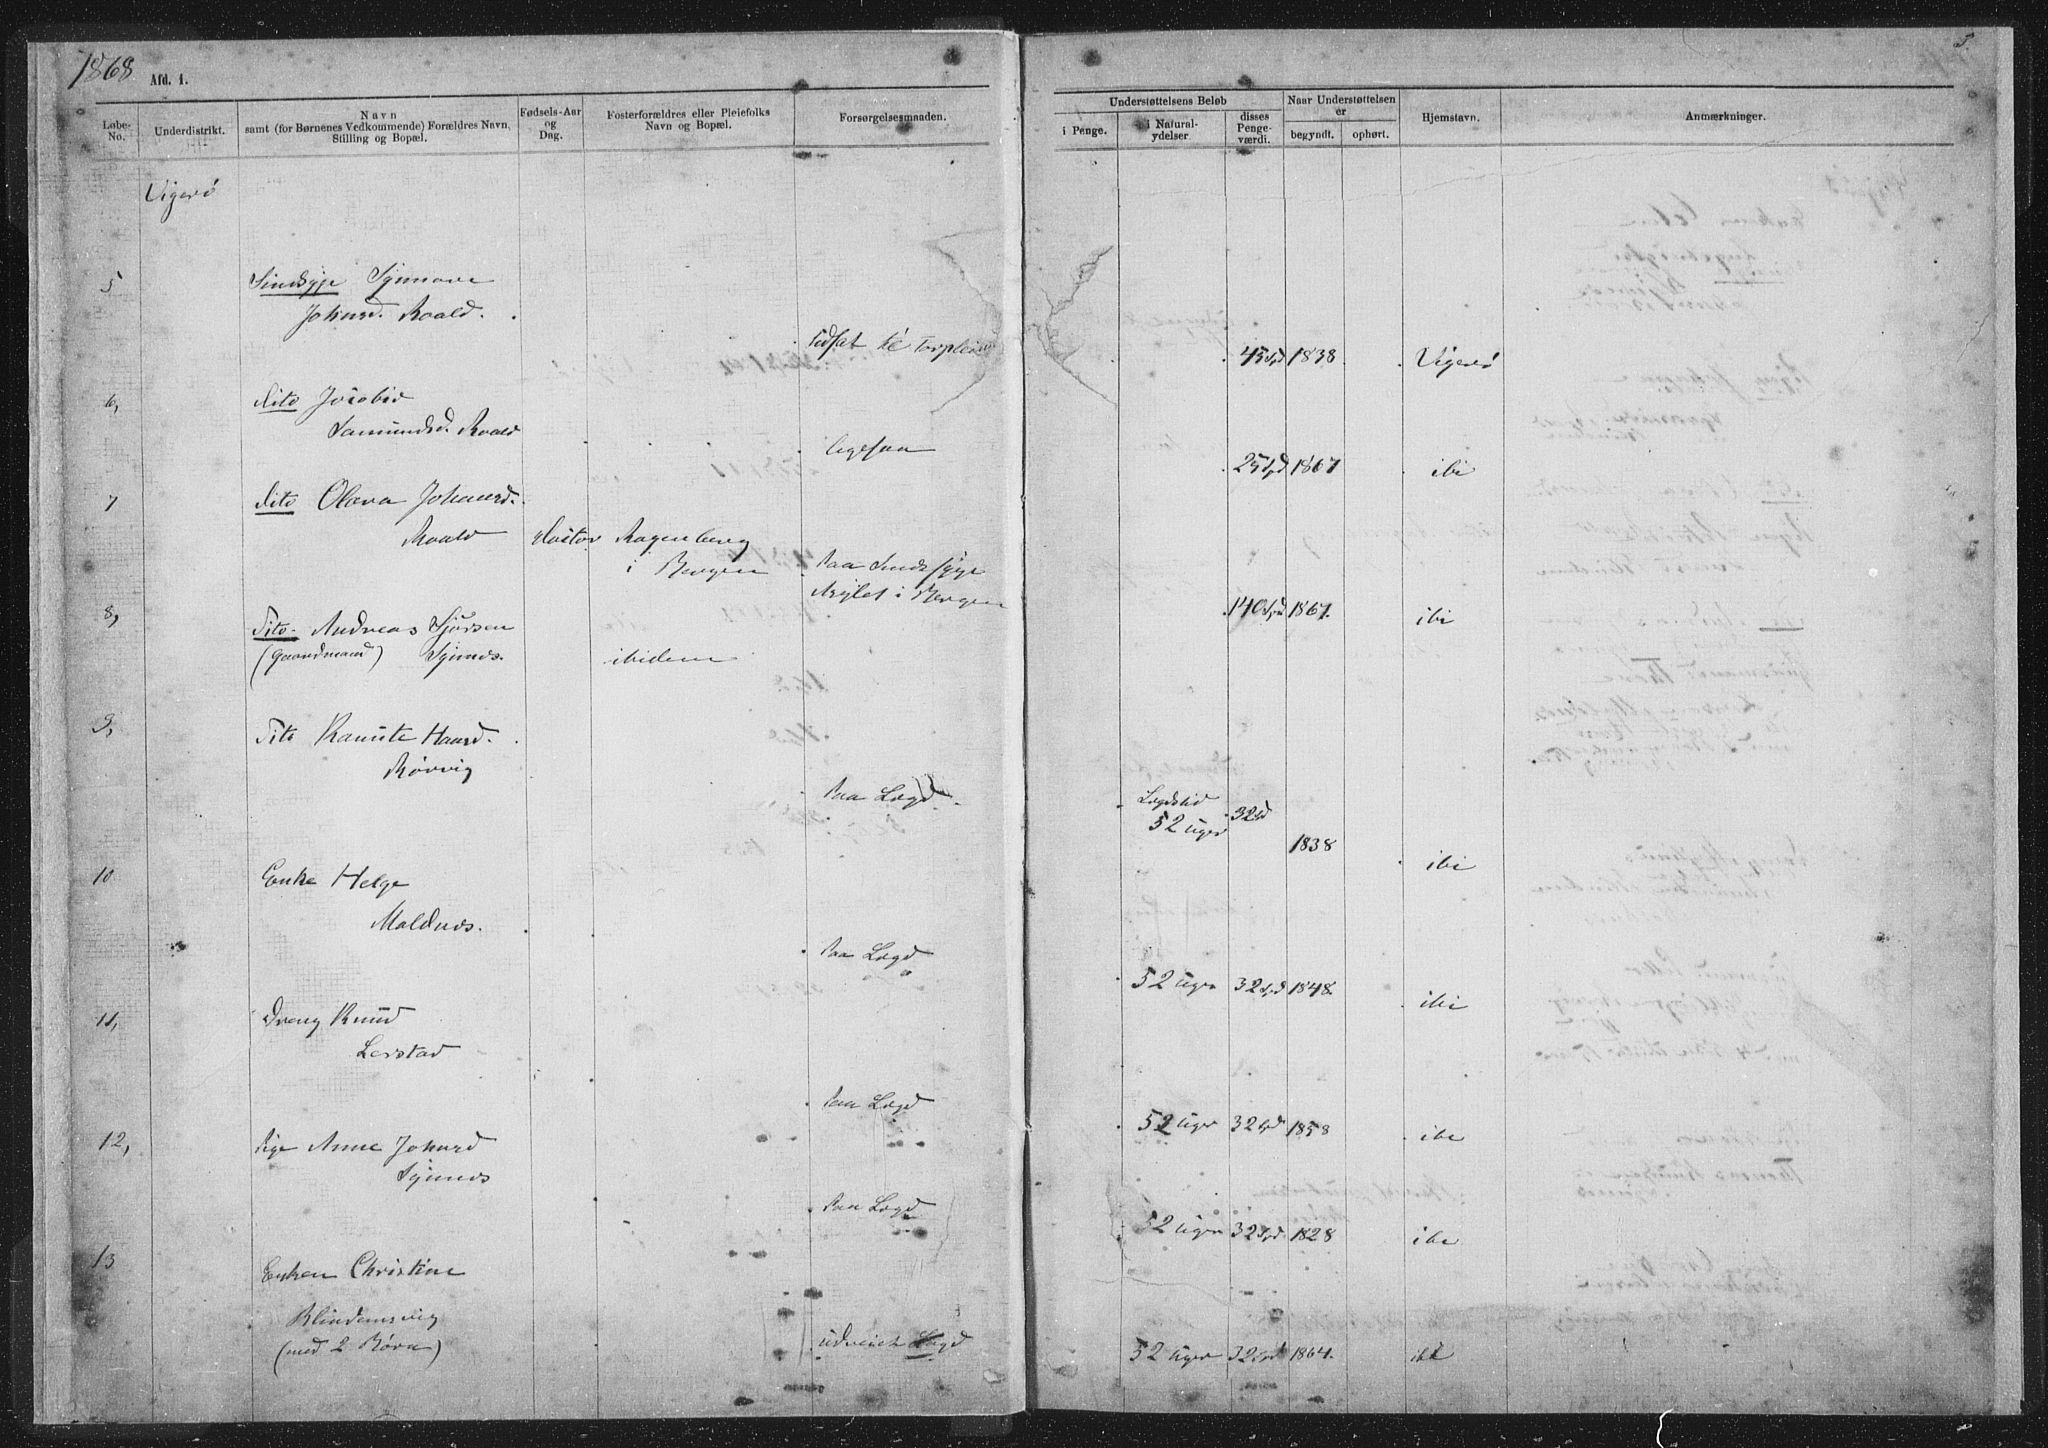 1868 Afd. 1.
5.
Løbe-No. Underdistrikt. Navn samt (for Børnenes Vedkommende) Forældres Navn, Stilling og Bopæl. Fødsels-Aar og Dag. Fosterforældres eller Pleiefolks Navn og Bopæl. Forsørgelsesmaaden.
Understøttelsens Beløb i Penge. i Natural-ydelser disses Penge-værdi. Naar Understøttelsen er begyndt. ophørt. Hjemstavn. Anmærkninger.
Vigerø
5 Sindsyge Synnøve
Johnsd. Roald.
Udsat til Forpleining 45 Spd 1838 Vigerø
6, dito Jacobid
Samundsd. Roald
ligesaa 25 Spd 1867 ibi
7 dito Olava Johansd.
Roald Doctor Rogenberg
i Bergen Paa Sindssyge
Asylet i Bergen 140 Spd 1867. ibi
8, Dito Andreas Sjursen
(gaardmand) Synnes. ibidem
9, Dito Ranute Hansd.
Rørvig
Paa Lægd. Lægdstid
52 Uger 32 Spd 1838 ibi
10 Enke Helge
Moldnæs.
Paa Lægd 52 Uger 32 Spd 1848. ibi
11, Dreng Knud
Lerstad
Paa Lægd 52 Uger 32 Spd 1858 ibi
12, Pige Anne Johnsd
Synnes
Paa Lægd 52 Uger 32 Spd 1828 ibi
13 Enken Christine
Blindemsvig
(med 2 Børn) Lægd 52 Uger 32 Spd 1864. ibi